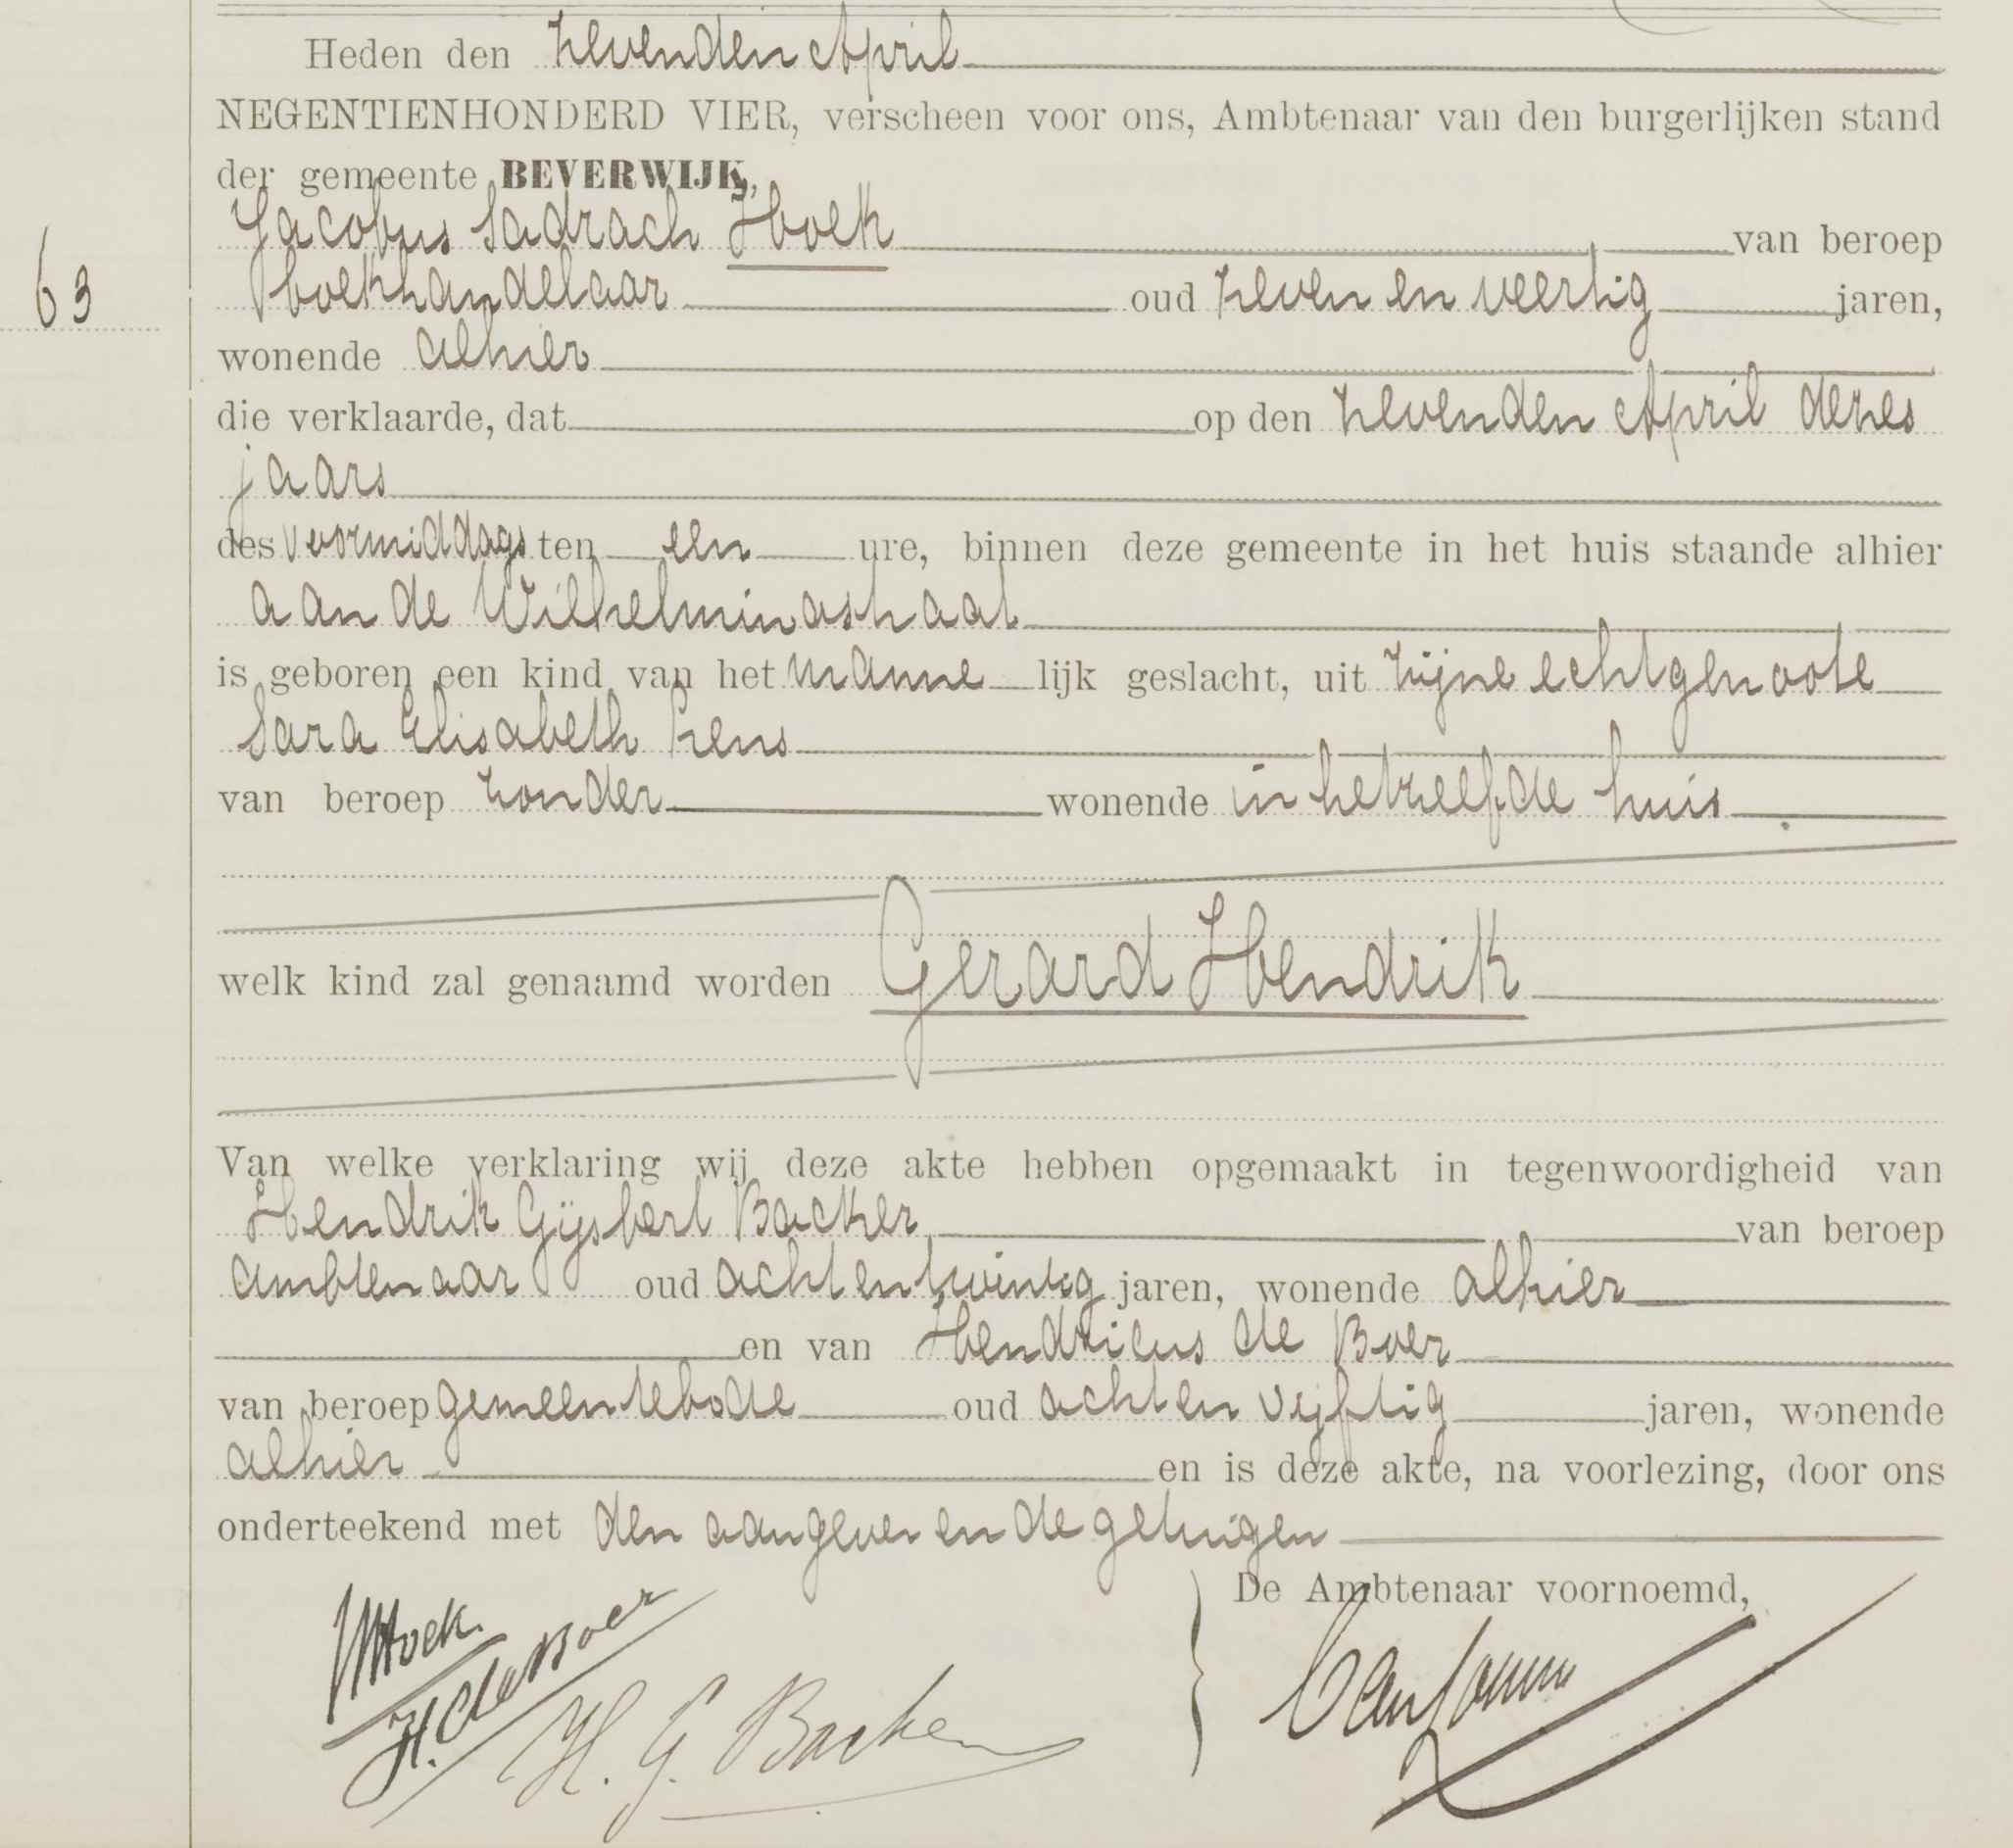 Heden den zevenden April
NEGENTIENHONDERD VIER, verscheen voor ons, Ambtenaar van den burgerlijken stand
der gemeente BEVERWIJK,
Jacobus Sadrach Hoek van beroep
63
boekhandelaar oud zeven en veertig jaren,
wonende alhier
die verklaarde, dat op den zevenden April dezes
jaars
des voormiddags ten een ure, binnen deze gemeente in het huis staande alhier
aan de Wilhelminastraat
is geboren een kind van het manne lijk geslacht, uit zijne echtgenoote
Sara Elisabeth Rens
van beroep zonder wonende in hetzelfde huis
welk kind zal genaamd worden Gerard Hendrik
Van welke verklaring wij deze akte hebben opgemaakt in tegenwoordigheid van
Hendrik Gijsbert Backer van beroep
ambtenaar oud achtentwintig jaren, wonende alhier
en van Hendricus de Boer
van beroep gemeentebode oud acht en vijftig jaren, wonende
alhier en is deze akte, na voorlezing, door ons
onderteekend met den aangever en de getuigen
De Ambtenaar voornoemd,
Hoek.
H. de Boer
H. G. Backer